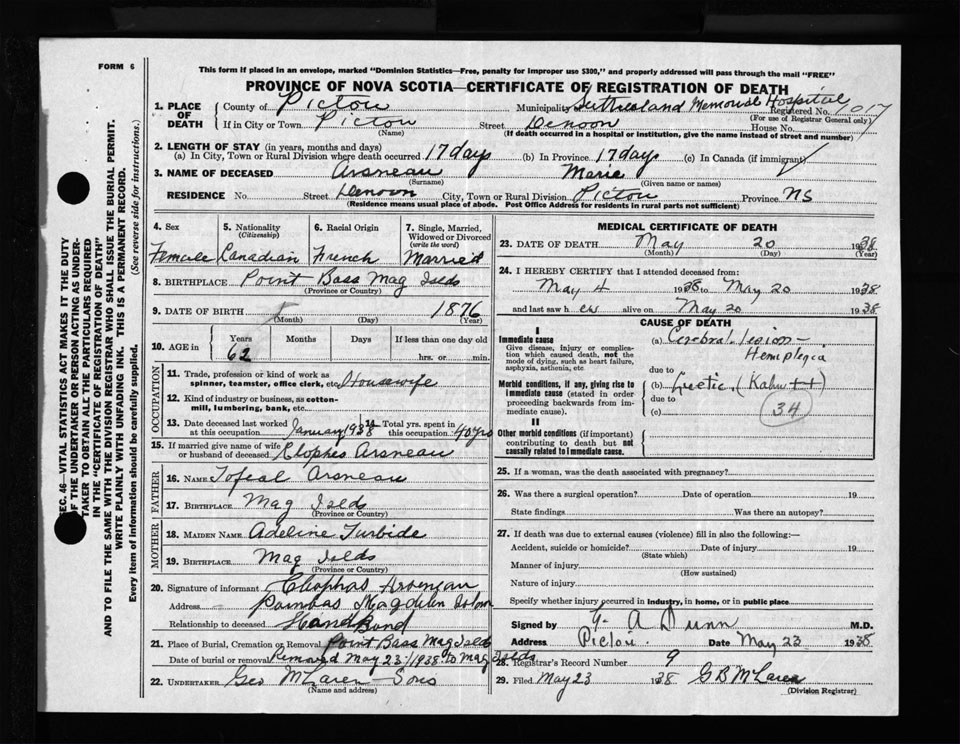 FORM 6
This form if placed in an envelope, marked "Dominion Statistics—Free, penalty for improper use $300," and properly addressed will pass through the mail "FREE"
PROVINCE OF NOVA SCOTIA—CERTIFICATE OF REGISTRATION OF DEATH
1. PLACE OF DEATH
County of Pictou Municipality Sutherland Memorial Hospital
Registered No. 017
(For use of Registrar General only)
If in City or Town Pictou Street Denoon House No.
(Name) (If death occurred in a hospital or institution, give the name instead of street and number)
2. LENGTH OF STAY (in years, months and days)
(a) In City, Town or Rural Division where death occurred 17 days (b) In Province 17 days (c) In Canada (if immigrant)
3. NAME OF DECEASED Arsneau Marie
(Surname) (Given name or names)
RESIDENCE No. Street Denoon City, Town or Rural Division Pictou Province NS
(Residence means usual place of abode. Post Office Address for residents in rural parts not sufficient)
4. Sex 5. Nationality (Citizenship) 6. Racial Origin 7. Single, Married, Widowed or Divorced (write the word)
Female Canadian French Married
8. BIRTHPLACE Point Bass Mag Islds
(Province or Country)
9. DATE OF BIRTH 1876
(Month) (Day) (Year)
10. AGE in Years Months Days If less than one day old
62 hrs. or min.
OCCUPATION
11. Trade, profession or kind of work as spinner, teamster, office clerk, etc. Housewife
12. Kind of industry or business, as cotton-mill, lumbering, bank, etc.
13. Date deceased last worked at this occupation January 1938 14. Total yrs. spent in this occupation 40 yrs
15. If married give name of wife or husband of deceased Clophes Arsneau
FATHER
16. NAME Tofeal Arsneau
17. BIRTHPLACE Mag Islds
(Province or Country)
MOTHER
18. MAIDEN NAME Adeline Turbide
19. BIRTHPLACE Mag Islds
(Province or Country)
20. Signature of informant Cleophas Arseneau
Address Poinbas Magdilen
Relationship to deceased HandBond
21. Place of Burial, Cremation or Removal Point Bass Mag Islds
Date of burial or removal Removed May 23/1938 to Mag Islds
22. UNDERTAKER Geo McLaren Sons
(Name and address)
MEDICAL CERTIFICATE OF DEATH
23. DATE OF DEATH May 20 1938
(Month) (Day) (Year)
24. I HEREBY CERTIFY that I attended deceased from:
May 4 1938 to May 20 1938
and last saw h er alive on May 20 1938
CAUSE OF DEATH
I
Immediate cause
Give disease, injury or complication which caused death, not the mode of dying, such as heart failure, asphyxia, asthenia, etc
(a) Cerebral lesion —
Hemiplegia
due to
Morbid conditions, if any, giving rise to immediate cause (stated in order proceeding backwards from immediate cause).
(b) Luetic (Kahn ++)
due to
(c)
34
II
Other morbid conditions (if important) contributing to death but not causally related to immediate cause.
25. If a woman, was the death associated with pregnancy?
26. Was there a surgical operation? Date of operation 19
State findings Was there an autopsy?
27. If death was due to external causes (violence) fill in also the following:—
Accident, suicide or homicide? Date of injury 19
(State which)
Manner of injury
(How sustained)
Nature of injury
Specify whether injury occurred in industry, in home, or in public place
Signed by G. A Dunn M.D.
Address Pictou Date May 23 1938
28. Registrar's Record Number 9
29. Filed May 23 1938 G B McLaren
(Division Registrar)
SEC. 46—VITAL STATISTICS ACT MAKES IT THE DUTY
OF THE UNDERTAKER OR PERSON ACTING AS UNDER-
TAKER TO OBTAIN ALL THE PARTICULARS REQUIRED
IN THE "CERTIFICATE OF REGISTRATION OF DEATH"
AND TO FILE THE SAME WITH THE DIVISION REGISTRAR WHO SHALL ISSUE THE BURIAL PERMIT.
WRITE PLAINLY WITH UNFADING INK. THIS IS A PERMANENT RECORD.
Every item of information should be carefully supplied. (See reverse side for instructions.)